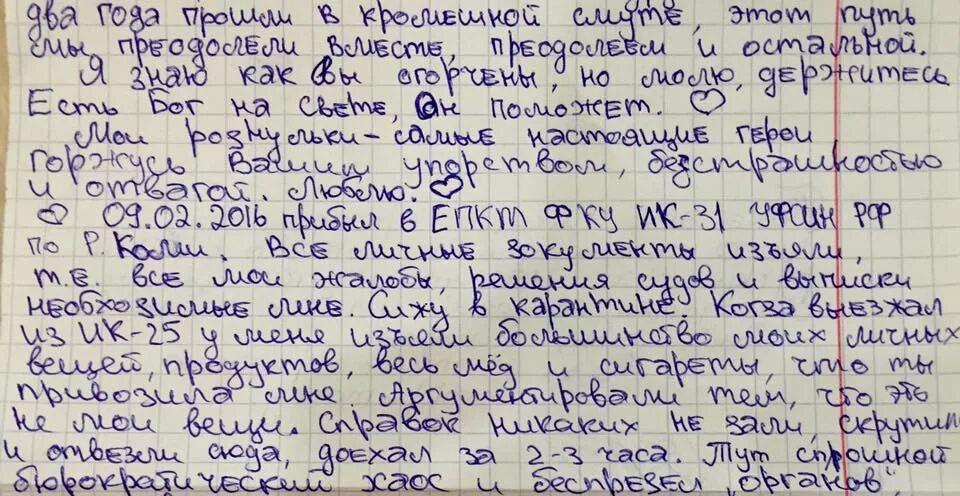 два года прошли в кромешной смуте, этот путь
мы преодолели вместе, преодолеем и остальной.
Я знаю как Вы огорчены, но молю, держитесь
Есть Бог на свете, Он поможет. ♡
Мои рознульки - самые настоящие герои
горжусь Вашим упорством, безстрашностью
и отвагой. Люблю. ♡
♡ 09.02.2016 прибыл в ЕПКТ ФКУ ИК-31 УФСИН РФ
по Р.Коми. Все личные зокументы изъяли,
т.е. все мои жалобы, решения судов и выписки
необхозимые мне. Сижу в карантине. Когза выезжал
из ИК-25 у меня изъяли большинство моих личных
вещей, продуктов, весь мёд и сигареты, что ты
привозила мне. Аргументировали тем, что это
не мои вещи. Справок никаких не зали, скрутили
и отвезли сюда, доехал за 2-3 часа. Тут сплошной
бюрократический хаос и беспрезел „органов".